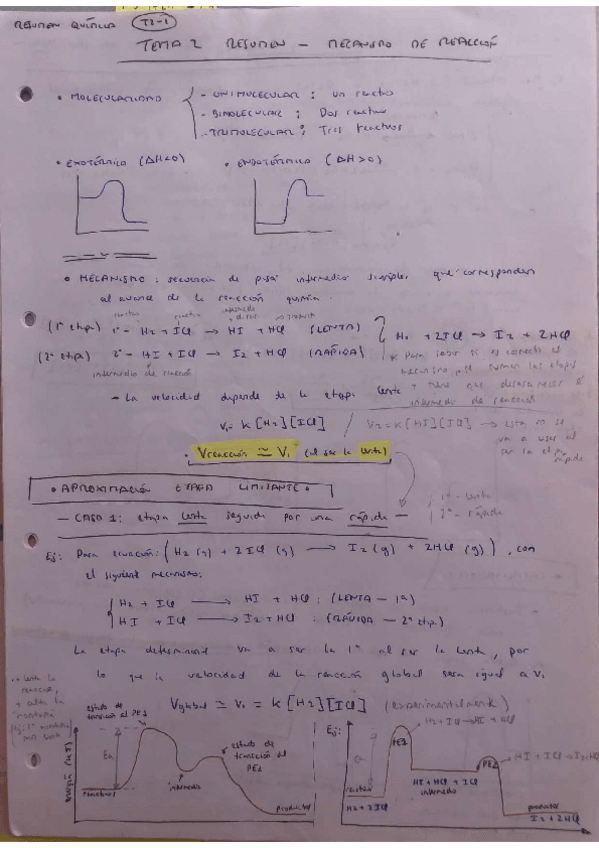 RESUMEN QUÍMICA T2-1
TEMA 2 RESUMEN - MECANISMO DE REACCIÓN
• MOLECULARIDAD
- UNIMOLECULAR : un reactivo
- BIMOLECULAR : Dos reactivos
- TRIMOLECULAR : Tres reactivos
• EXOTÉRMICA (ΔH<0) • ENDOTÉRMICA (ΔH>0)
• MECANISMO : secuencia de pasos intermedios simples que corresponden
al avance de la reacción química.
reactivo reactivo producto
(1ª etapa) 1º- H2 + ICl → HI + HCl (LENTA) H2 + 2ICl → I2 + 2HCl
(2ª etapa) 2º- HI + ICl → I2 + HCl (RÁPIDA) * Para saber si es correcto el
intermedio de reacción mecanismo se suman las etapas
- La velocidad depende de la etapa lenta y tiene que desaparecer el
intermedio de reacción
V1= K[H2][ICl] V2=K[HI][ICl] → esta no se
va a usar al
ser la etapa rápida
• Vreacción ≃ V1 (al ser la lenta)
• APROXIMACIÓN ETAPA LIMITANTE •
- CASO 1: etapa lenta seguida por una rápida - 1º- lenta
2º- rápida
Ej: Para ecuación: (H2 (g) + 2ICl (g) → I2 (g) + 2HCl (g)), con
el siguiente mecanismo:
H2 + ICl → HI + HCl : (LENTA - 1ª)
HI + ICl → I2 + HCl : (RÁPIDA - 2ª etapa)
La etapa determinante va a ser la 1ª al ser la lenta, por
lo que la velocidad de la reacción global sera igual a V1
Vglobal ≃ V1 = K[H2][ICl] (experimentalmente)
+ lenta la
reacción,
+ alta la
montaña
(Ej: 1ª montaña
más lenta)
estado de
transición del PE1
estado de
transición del
PE2
Ea
Energía (kJ)
reactivos
intermedio
productos
Ej:
H2 + ICl → HI + HCl
PE1
HI + ICl → I2 + HCl
PE2
Ea
reactivos
H2 + 2ICl
HI + HCl + ICl
intermedio
productos
I2 + 2HCl